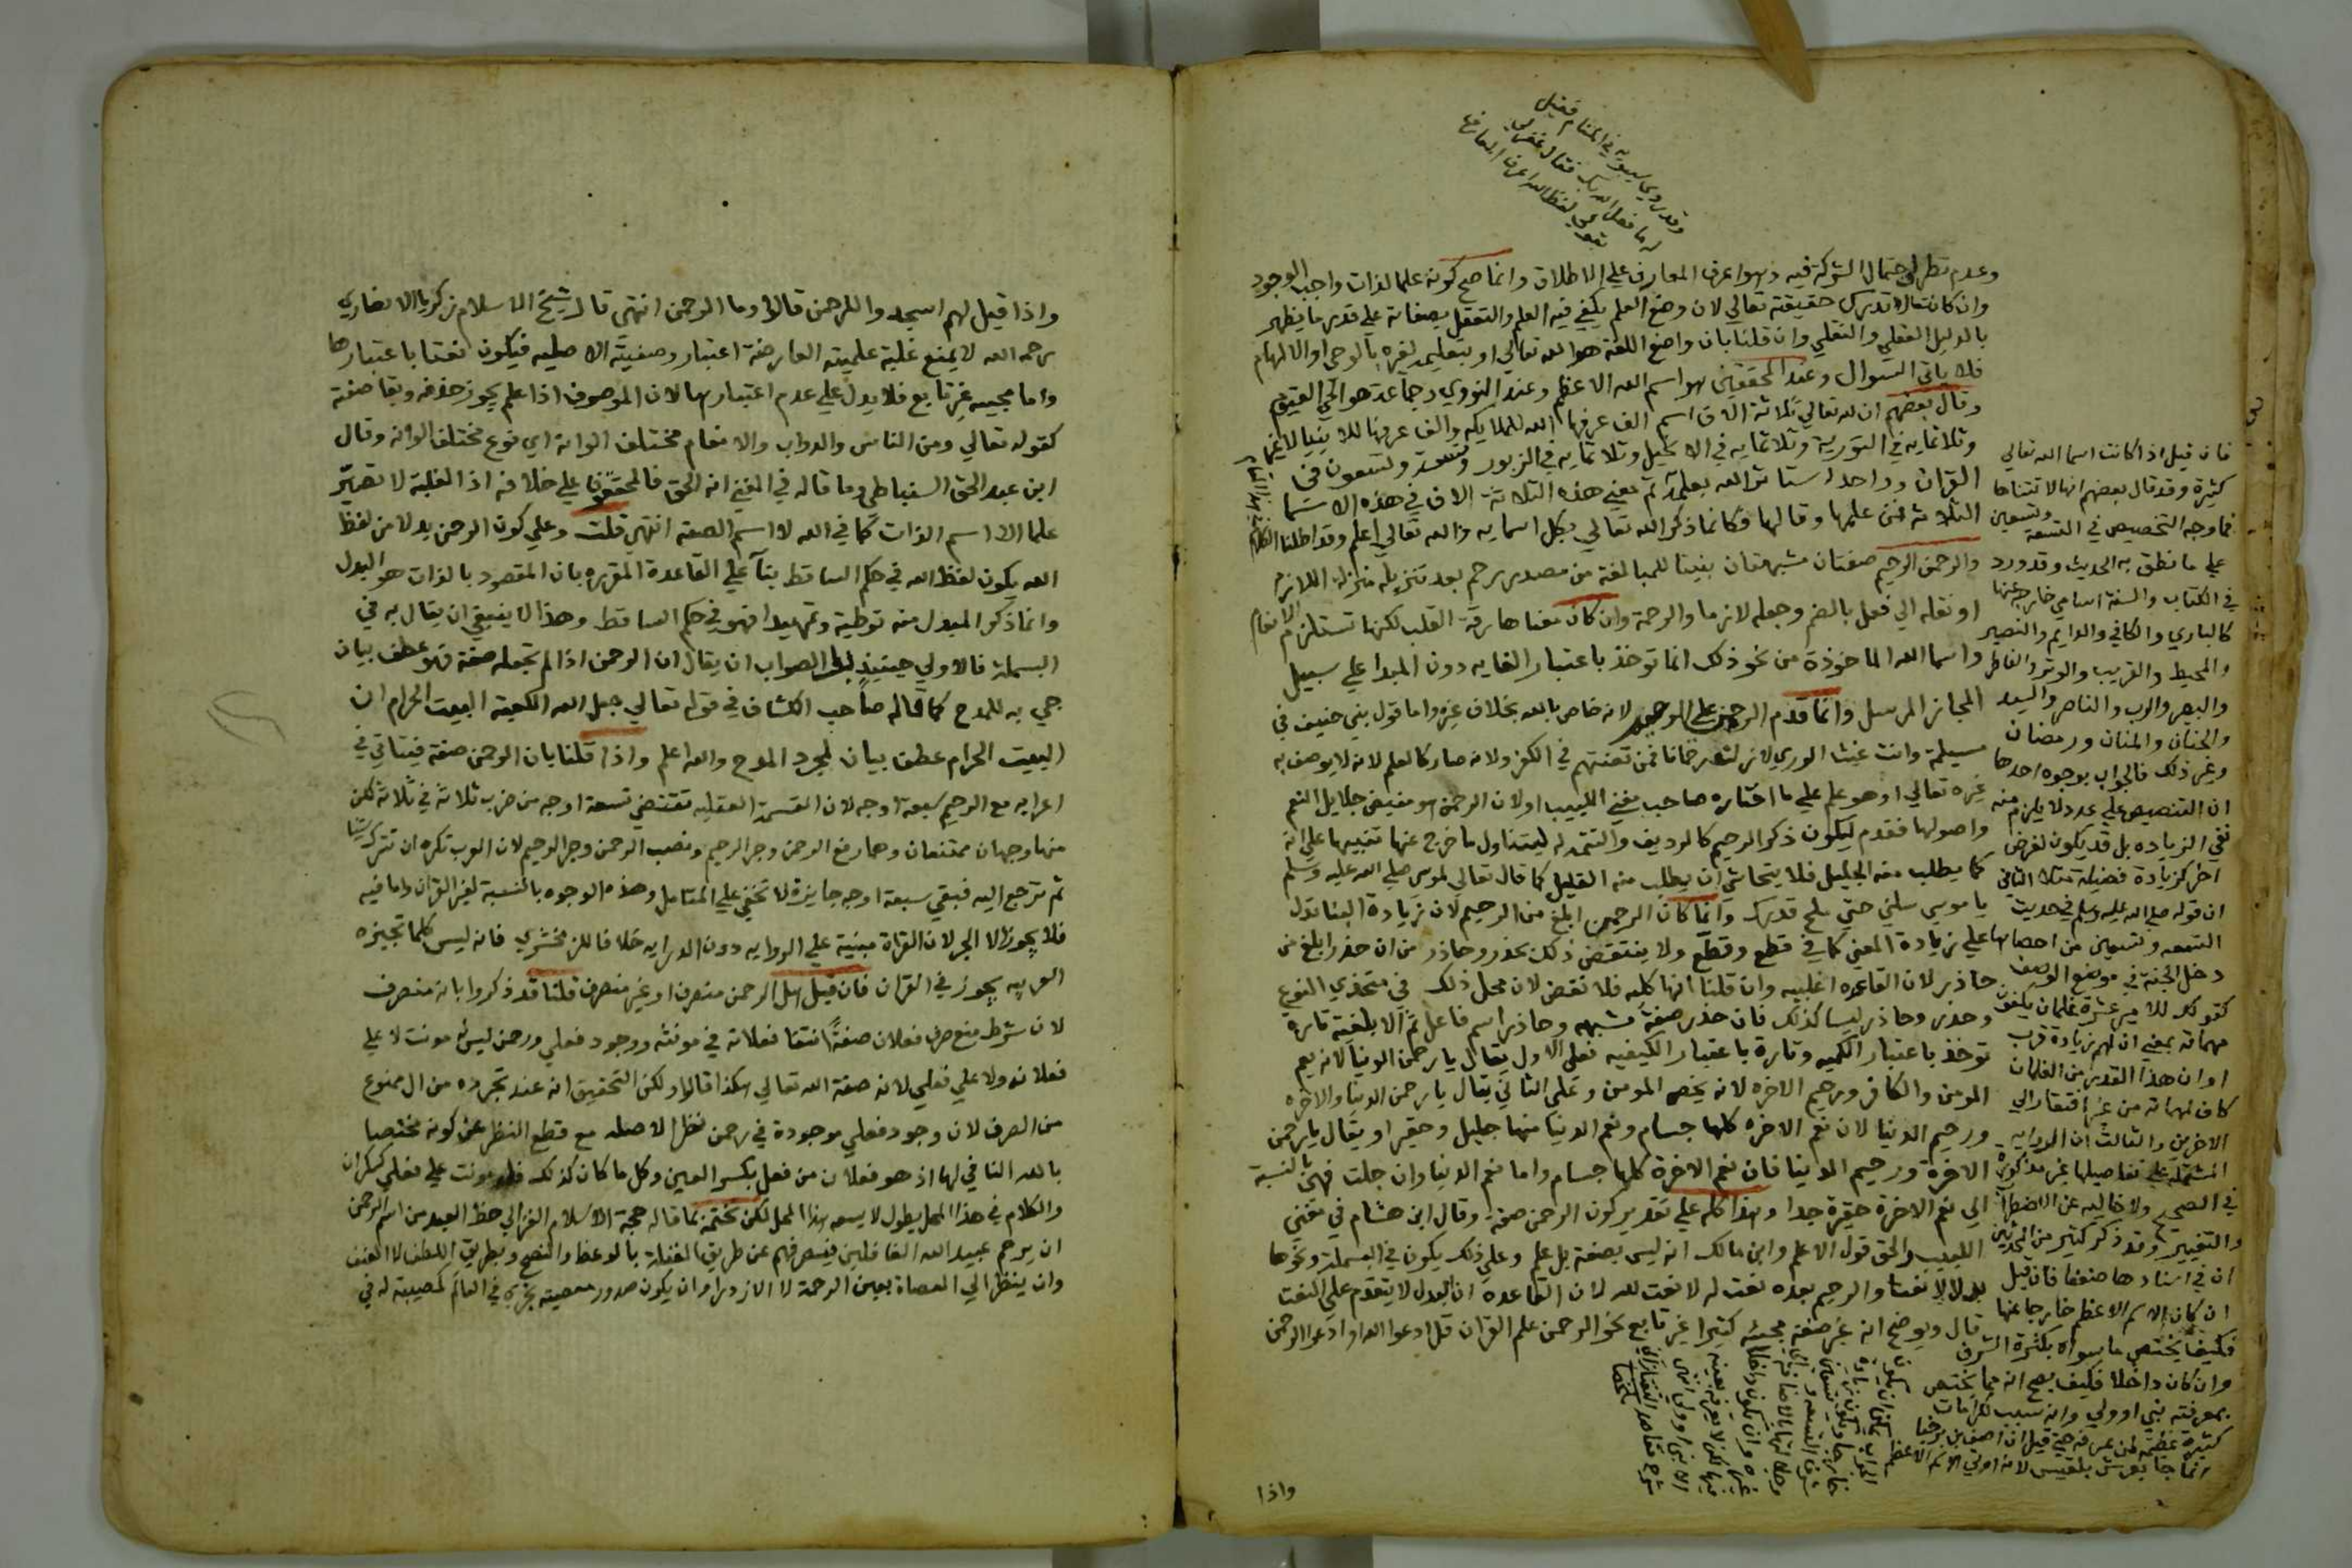 وقد روي سيبويه في المنام فقيل
له ما فعل الله بك فقال غفر لي
بقولي لفظ الله اعرف المعارف
وعدم تطرق احتمال الشركة فيه وهو اعرف المعارف علي الاطلاق وانما صح كونه علما لذات واجب الوجود
وان كانت لا تدرك حقيقته تعالي لان وضع العلم يكفي فيه العلم والتعقل بصفاته علي قدر ما يظهر
بالدليل العقلي والنقلي وان قلنا بان واضع اللغة هو الله تعالي او بتعليمه لغيره بالوحي او الالهام
فلا ياتي السوال وعند المحققين هو اسم الله الاعظم وعند النووي وجماعة هو الحي القيوم
وقال بعضهم ان لله تعالي ثلاثة الاف اسم الف عرفها الله للملايكه والف عرفها للانبيا
وثلاثمايه في التورية وثلاثمايه في الانجيل وثلاثمايه في الزبور وتسعة وتسعون في
القران وواحد استاثر الله بعلمه ثم معني هذه الثلاثة الاف في هذه الاسما
الثلاثة فمن علمها وقالها فكانما ذكر الله تعالي بكل اسمايه والله تعالي اعلم وقد اطلنا الكلام
والرحمن الرحيم صفتان مشبهتان بنيتا للمبالغة من مصدر رحم بعد تنزيله منزلة اللازم
او نقله الي فعل بالضم وجعله لازما والرحمة وان كان معناها رقة القلب لكنها تستلزم الانعام
واسما الله الماخوذة من نحو ذلك انما توخذ باعتبار الغايه دون المبدا علي سبيل
المجاز المرسل وانما قدم الرحمن علي الرحيم لانه خاص بالله بخلاف غيره واما قول بني حنيفة في
مسيلمة وانت غيث الوري لا زلت رحمانا فمن تعنتهم في الكفر ولانه صار كالعلم لانه لا يوصف به
غيره تعالي او هو علم علي ما اختاره صاحب مغني اللبيب او لان الرحمن هو مفيض جلايل النعم
واصولها فقدم ليكون ذكر الرحيم كالرديف والتتمه له ليتناول ما خرج عنها تنبيها علي انه
كما يطلب منه الجليل فلا يتحاشي ان يطلب منه القليل كما قال تعالي لموسي صلي الله عليه وسلم
يا موسي سلني حتي ملح قدرك وانما كان الرحمن ابلغ من الرحيم لان زيادة البنا تدل
علي زيادة المعني كما في قطع وقطّع ولا ينتقض ذلك بحذر وحاذر من ان حذر ابلغ من
حاذر لان القاعده اغلبيه وان قلنا انها كليه فلا نقض لان محل ذلك في متحدي النوع
وحذر وحاذر ليسا كذلك فان حذر صفة مشبهه وحاذر اسم فاعل ثم الابلغية تارة
توخذ باعتبار الكميه وتارة باعتبار الكيفيه فعلي الاول يقال يا رحمن الدنيا لانه يعم
المومن والكافر ورحيم الاخره لانه يخص المومن وعلي الثاني يقال يا رحمن الدنيا والاخره
ورحيم الدنيا لان نعم الاخره كلها جسام ونعم الدنيا منها جليل وحقير او يقال يا رحمن
الاخرة ورحيم الدنيا فان نعم الاخرة كلها جسام واما نعم الدنيا وان جلت فهي بالنسبة
الي نعم الاخرة حقيرة جدا وهذا كله علي تقدير كون الرحمن صفة وقال ابن هشام في مغني
اللبيب والحق قول الاعلم وابن مالك انه ليس بصفة بل علم وعلي ذلك يكون في البسملة ونحوها
بدلا لا نعتا والرحيم بعده نعت له لا نعت لله لان القاعده ان البدل لا يتقدم علي النعت
قال ويوضح انه غير صفة مجيئه كثيرا غير تابع نحو الرحمن علم القران قل ادعوا الله او ادعوا الرحمن
فان قيل اذا كانت اسما الله تعالي
كثيرة وقد قال بعضهم انها لا تتناها
فما وجه التخصيص في التسعة وتسعين
علي ما نطق به الحديث وقد ورد
في الكتاب والسنة اسامي خارجة عنها
كالباري والكافي والدايم والنصير
والمحيط والقريب والوتر والفاطر
والبصير والرب والناصر والسيد
والحنان والمنان ورمضان
وغير ذلك فالجواب بوجوه احدها
ان التنصيص علي عدد لا يلزم منه
نفي الزياده بل قد يكون لغرض
اخر كزيادة فضيلة مثلا الثاني
ان قوله صلي الله عليه وسلم في حديث
التسعه وتسعين من احصاها
دخل الجنة في موضع الوصف
كقولك للامير عشرة غلمان يكفون
مهماته بمعني ان لهم زيادة قرب
او ان هذا القدر من الغلمان
كاف لمهماته من غير افتقار الي
الاخرين والثالث ان الروايه
المشتملة علي تفاصيلها غير مذكورة
في الصحيح ولا خاليه عن الاضطراب
والتغيير وقد ذكر كثير من المحدثين
ان في اسنادها ضعفا فان قيل
ان كان الاسم الاعظم خارجا عنها
فكيف يختص ما سواه بكثرة الشرف
وان كان داخلا فكيف يصح انه مما يختص
بمعرفته نبي او ولي وانه سبب لكرامات
كثيرة عظيمه لمن عرفه حتي قيل ان اصف بن برخيا
انما جا بعرش بلقيس لانه اوتي الاسم الاعظم
شرح مقاصد التفتازاني
ملخصا
واذا
واذا قيل لهم اسجدوا للرحمن قالوا وما الرحمن انتهي قال شيخ الاسلام زكريا الانصاري
رحمه الله لا يمنع غلبة علميته العارضة اعتبار وصفيته الاصليه فيكون نعتا باعتبارها
واما مجييه غير تابع فلا يدل علي عدم اعتبارها لان الموصوف اذا علم يجوز حذفه وبقا صفته
كقوله تعالي ومن الناس والدواب والانعام مختلف الوانه اي نوع مختلف الوانه وقال
ابن عبد الحق السنباطي وما قاله في المغني انه الحق فالمحققون علي خلافه اذ الغلبة لا تصيّر
علما الا اسم الذات كما في الله لا اسم الصفه انتهي قلت وعلي كون الرحمن بدلا من لفظ
الله يكون لفظ الله في حكم الساقط بنآ علي القاعدة المقرره بان المقصود بالذات هو البدل
وانما ذكر المبدل منه توطية وتمهيدا فهو في حكم الساقط وهذا لا ينبغي ان يقال به في
البسملة فالاولي حينيذ بل الصواب ان يقال ان الرحمن اذا لم تجعله صفة فهو عطف بيان
جي به للمدح كما قاله صاحب الكشاف في قوله تعالي جعل الله الكعبة البيت الحرام ان
البيت الحرام عطف بيان لمجرد المدح والله اعلم واذا قلنا بان الرحمن صفة فيتاتي في
اعرابه مع الرحيم سبعة اوجه لان القسمة العقليه تقتضي تسعة اوجه من ضرب ثلاثة في ثلاثة لكن
منها وجهان ممتنعان وهما رفع الرحمن وجر الرحيم ونصب الرحمن وجر الرحيم لان العرب تكره ان تترك شيا
ثم ترجع اليه فبقي سبعة اوجه جايزة لا تخفي علي المتامل وهذه الوجوه بالنسبة لغير القران واما فيه
فلا يجوز الا الجر لان القراة مبنية علي الروايه دون الدرايه خلافا للزمخشري فانه ليس كلما تجيزه
العربيه يجوز في القران فان قيل هل الرحمن منصرف او غير منصرف قلنا قد ذكروا بانه منصرف
لان شرط منع صرف فعلان صفةً انتفا فعلانه في مونثه ووجود فعلي ورحمن ليس له مونث لا علي
فعلانه ولا علي فعلي لانه صفة الله تعالي هكذا قالوا ولكن التحقيق انه عند تجرده من ال ممنوع
من الصرف لان وجود فعلي موجودة في رحمن نظرا لاصله مع قطع النظر عن كونه مختصا
بالله النافي لها اذ هو فعلان من فعل بكسر العين وكل ما كان كذلك فله مونث علي فعلي كسكران
والكلام في هذا المحل يطول لا يسعه هذا المحل لكن نختمه بما قاله حجة الاسلام الغزالي حظ العبد من اسم الرحمن
ان يرحم عبيد الله الغافلين فيصرفهم عن طريق الغفلة بالوعظ والنصح وبطريق اللطف لا العنف
وان ينظر الي العصاة بعين الرحمة لا الازدرا وان يكون صدور معصية تجري في العالم كمصيبة له في